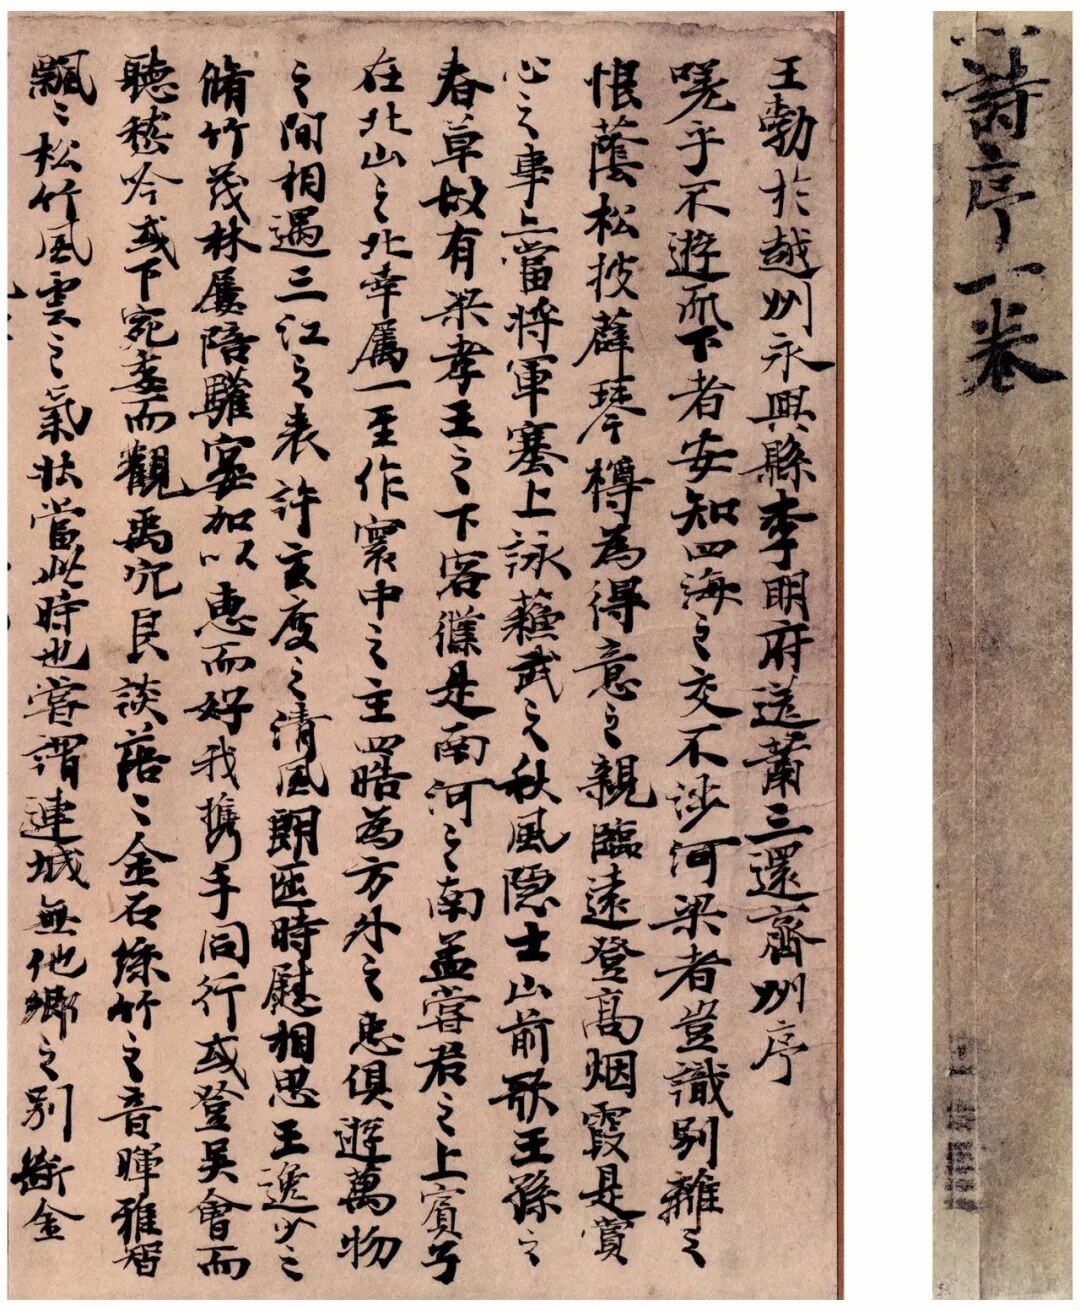 詩序一卷
王勃於越州永興縣李明府送蕭三還齊州序
嗟乎不遊天下者安知四海之交不涉河梁者豈識別離之
恨蔭松披薜琴樽為得意之親臨遠登高烟霞是賞
心之事上當將軍塞上詠蘓武之秋風隱士山前歌王孫之
春草故有梁孝王之下客僕是南河之南孟嘗君之上賓子
在北山之北幸屬一至作寰中之主四皓為方外之臣俱遊萬物
之間相遇三江之表許玄度之清風朗匝時慰相思王逸少之
脩竹茂林屢陪驩宴加以惠而好我攜手同行或登吳會而
聽越吟或下宛委而觀禹穴良談落々金石絲竹之音暉雅智
飄々松竹風雲之氣壯當此時也嘗謂連城無他鄉之別斷金